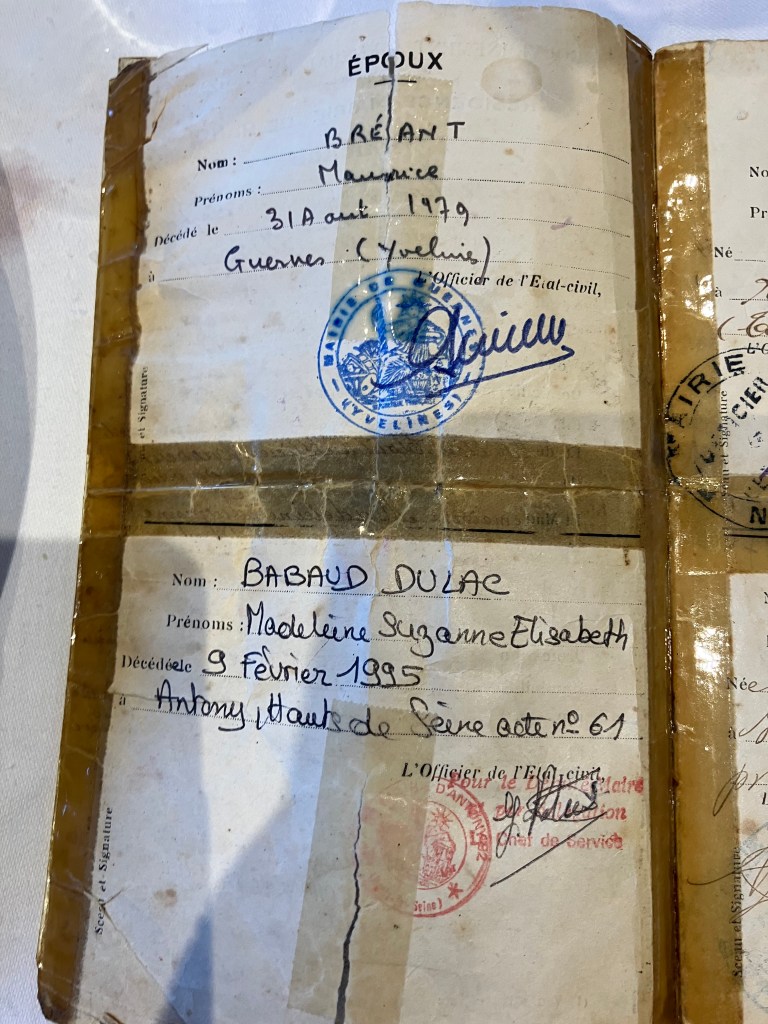 ÉPOUX
Nom : BRÉANT
Prénoms : Maurice
Décédé le 31 Aout 1979
à Guernes (Yvelines)
L'Officier de l'Etat-civil,
MAIRIE DE GUERNES
(YVELINES)
et Signature
Nom : BABAUD DULAC
Prénoms : Madeleine Suzanne Elisabeth
Décédée le 9 Février 1995
à Antony, Hauts de Seine acte nº 61
L'Officier de l'Etat-civil,
Pour le Maire
Chef de Service
D'ANTONY
Seine)
Sceau et Signature
No
Pr
Né
à
L'O
MAIRIE
OFFICIER
N
Sceau et Signature
Née
à
L
Sceau et Signature